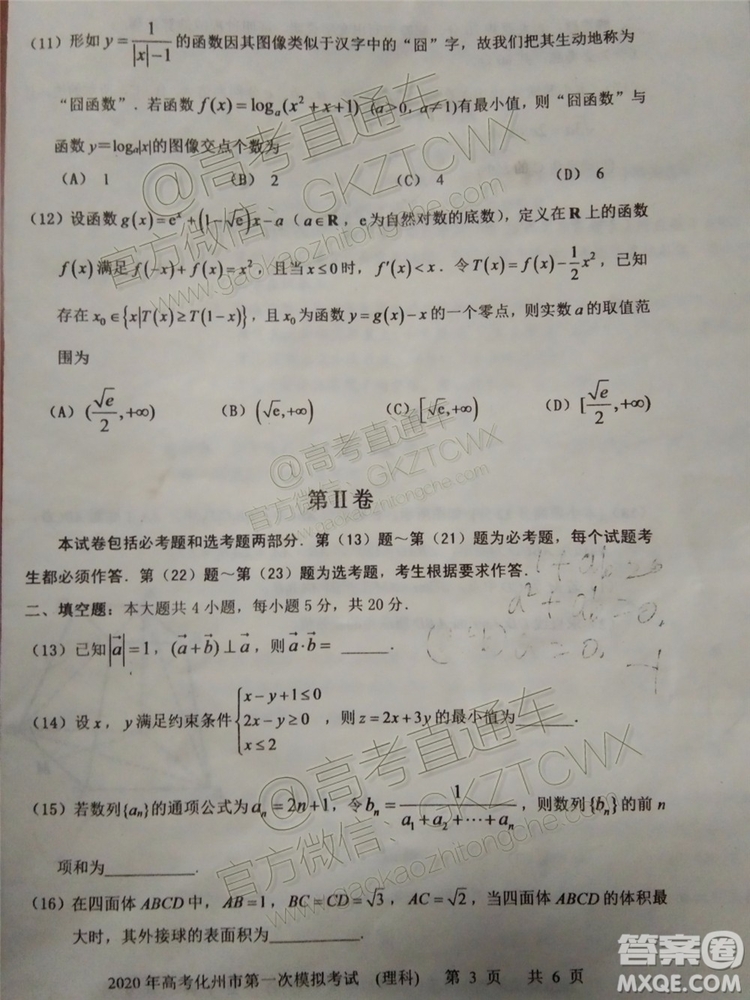 (11) 形如 y=1/(|x|-1) 的函数因其图像类似于汉字中的“囧”字，故我们把其生动地称为
“囧函数”．若函数 f(x)=logₐ(x²+x+1) (a>0, a≠1)有最小值，则“囧函数”与
函数 y=logₐ|x|的图像交点个数为
(A) 1 (B) 2 (C) 4 (D) 6
(12) 设函数 g(x)=eˣ+(1-√e)x-a（a∈R，e为自然对数的底数），定义在 R 上的函数
f(x)满足 f(-x)+f(x)=x²，且当 x≤0 时，f′(x)<x．令 T(x)=f(x)-½x²，已知
存在 x₀∈{x|T(x)≥T(1-x)}，且 x₀为函数 y=g(x)-x 的一个零点，则实数 a 的取值范
围为
(A) (√e/2,+∞) (B) (√e,+∞) (C) [√e,+∞) (D) [√e/2,+∞)
第Ⅱ卷
本试卷包括必考题和选考题两部分．第（13）题～第（21）题为必考题，每个试题考
生都必须作答．第（22）题～第（23）题为选考题，考生根据要求作答．
二、填空题：本大题共 4 小题，每小题 5 分，共 20 分．
(13) 已知|a⃗|=1，(a⃗+b⃗)⊥a⃗，则 a⃗·b⃗= ______．
(14) 设 x，y 满足约束条件{x-y+1≤0
2x-y≥0
x≤2，则 z=2x+3y 的最小值为________．
(15) 若数列{aₙ}的通项公式为 aₙ=2n+1，令 bₙ=1/(a₁+a₂+⋯+aₙ)，则数列{bₙ}的前 n
项和为__________．
(16) 在四面体 ABCD 中，AB=1，BC=CD=√3，AC=√2，当四面体 ABCD 的体积最
大时，其外接球的表面积为__________．
2020 年高考化州市第一次模拟考试 (理科) 第 3 页 共 6 页
@高考直通车
官方微信：GKZTCWX
www.gaokaozhitongche.com
@高考直通车
官方微信：GKZTCWX
@高考直通车
官方微信：GKZTCWX
www.gaokaozhitongche.com
答案圈
MXQE.COM